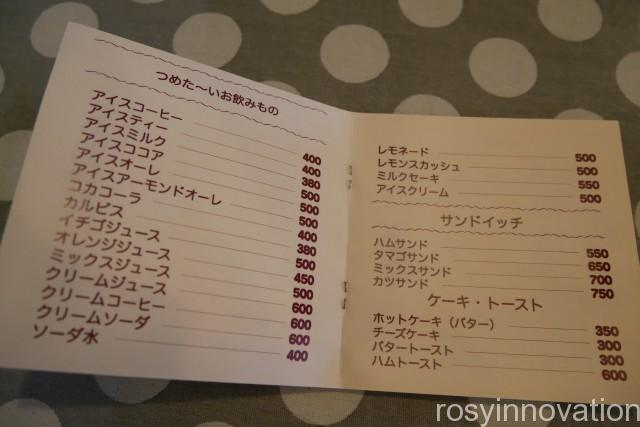 つめた〜いお飲みもの
アイスコーヒー 400
アイスティー 400
アイスミルク 380
アイスココア 500
アイスオーレ 500
アイスアーモンドオーレ 500
コカコーラ 400
カルピス 380
イチゴジュース 500
オレンジジュース 450
ミックスジュース 500
クリームジュース 600
クリームコーヒー 600
クリームソーダ 600
ソーダ水 400
レモネード 500
レモンスカッシュ 500
ミルクセーキ 550
アイスクリーム 500
サンドイッチ
ハムサンド 550
タマゴサンド 650
ミックスサンド 700
カツサンド 750
ケーキ・トースト
ホットケーキ（バター） 350
チーズケーキ 300
バタートースト 300
ハムトースト 600
rosyinnovation